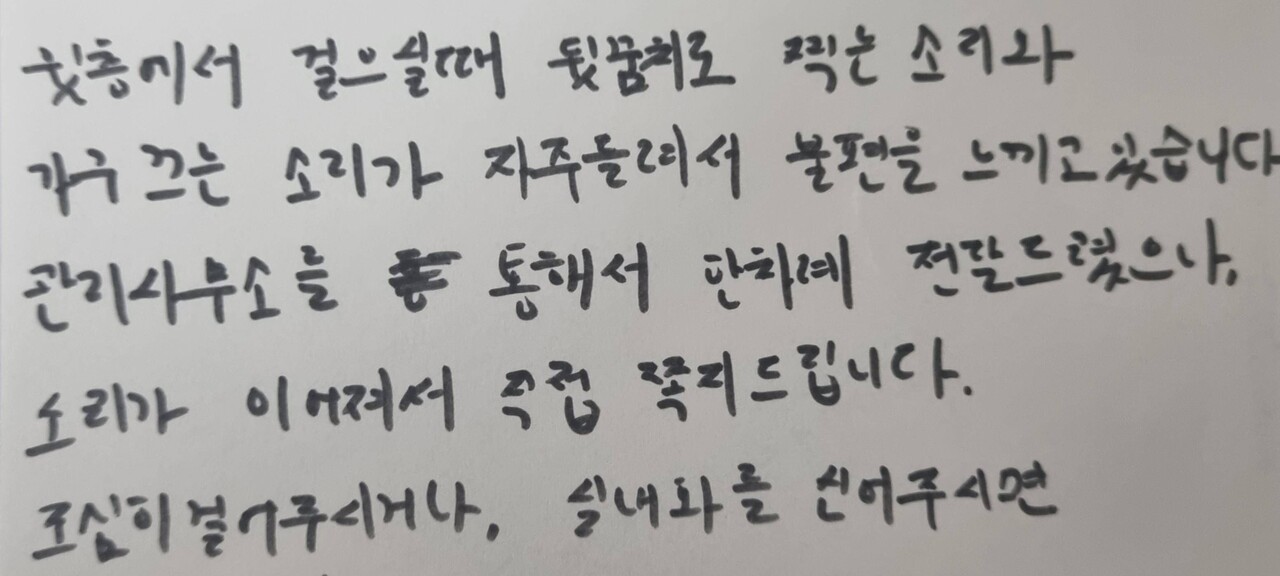 윗층에서 걸으실때 뒷꿈치로 찍는 소리와
가구 끄는 소리가 자주들려서 불편을 느끼고있습니다
관리사무소를 통해서 한차례 전달드렸으나,
소리가 이어져서 직접 쪽지드립니다.
조심히걸어주시거나, 실내화를 신어주시면